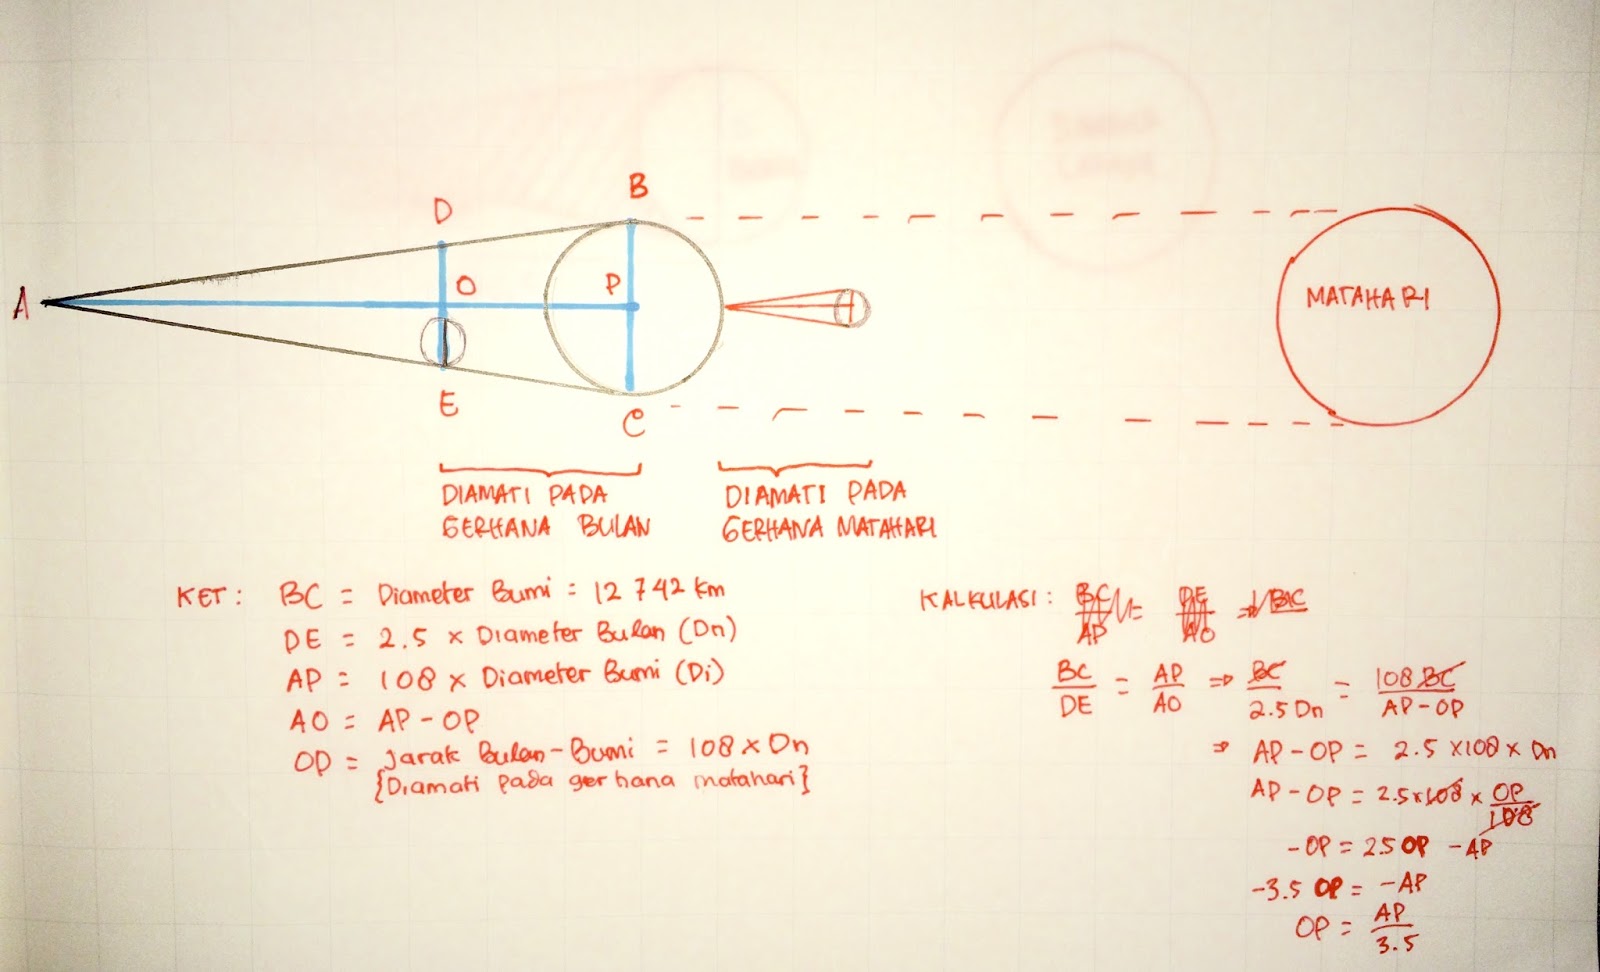 B
D
A
O
P
MATAHARI
E
C
DIAMATI PADA
GERHANA BULAN
DIAMATI PADA
GERHANA MATAHARI
KET : BC = Diameter Bumi = 12 742 km
DE = 2.5 × Diameter Bulan (Dn)
AP = 108 × Diameter Bumi (Di)
AO = AP - OP
OP = Jarak Bulan-Bumi = 108 × Dn
{Diamati pada gerhana matahari}
KALKULASI : BC/AP = DE/AO ⇒ BC
BC/DE = AP/AO ⇒ BC/2.5 Dn = 108 BC/AP - OP
⇒ AP - OP = 2.5 × 108 × Dn
AP - OP = 2.5 × 108 × OP/108
- OP = 2.5 OP - AP
-3.5 OP = - AP
OP = AP/3.5